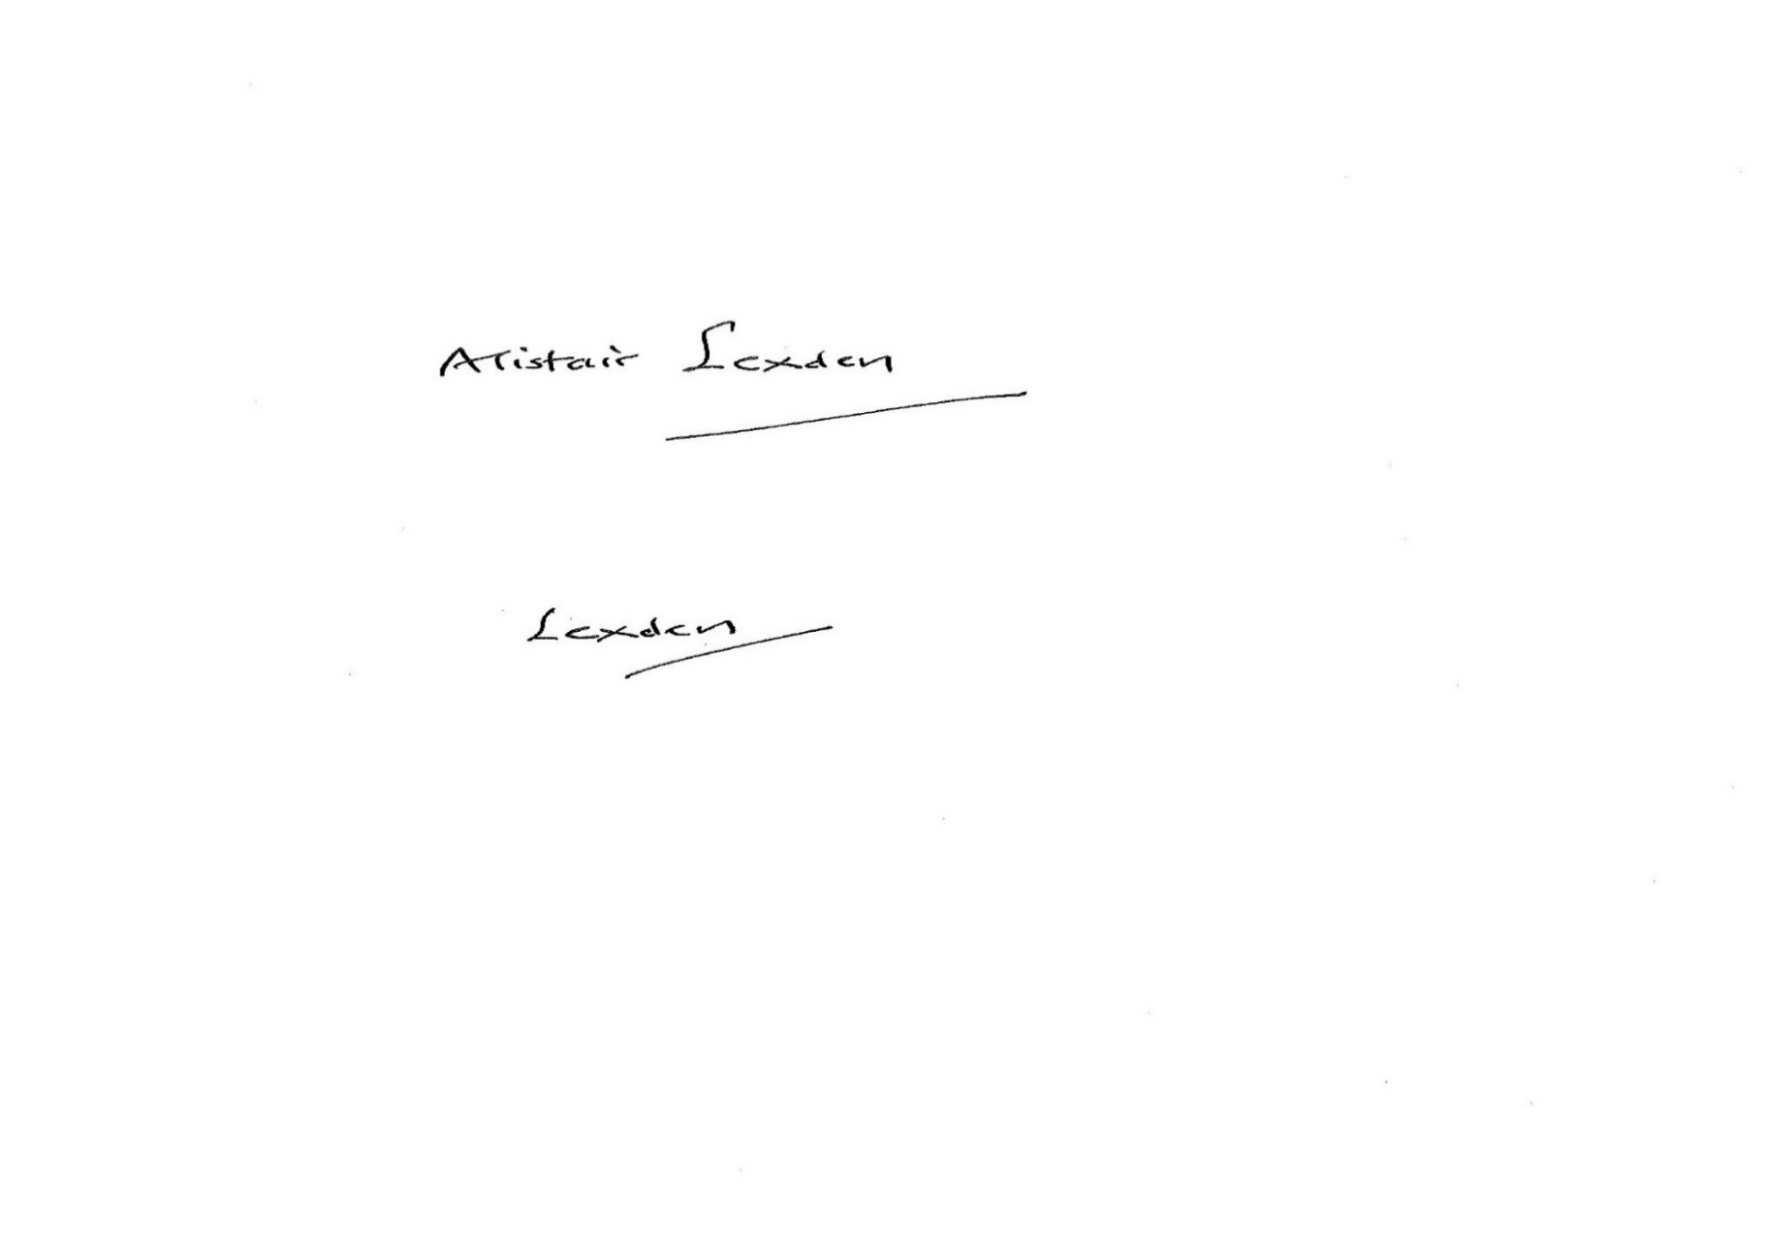 Alistair Lexden
Lexden